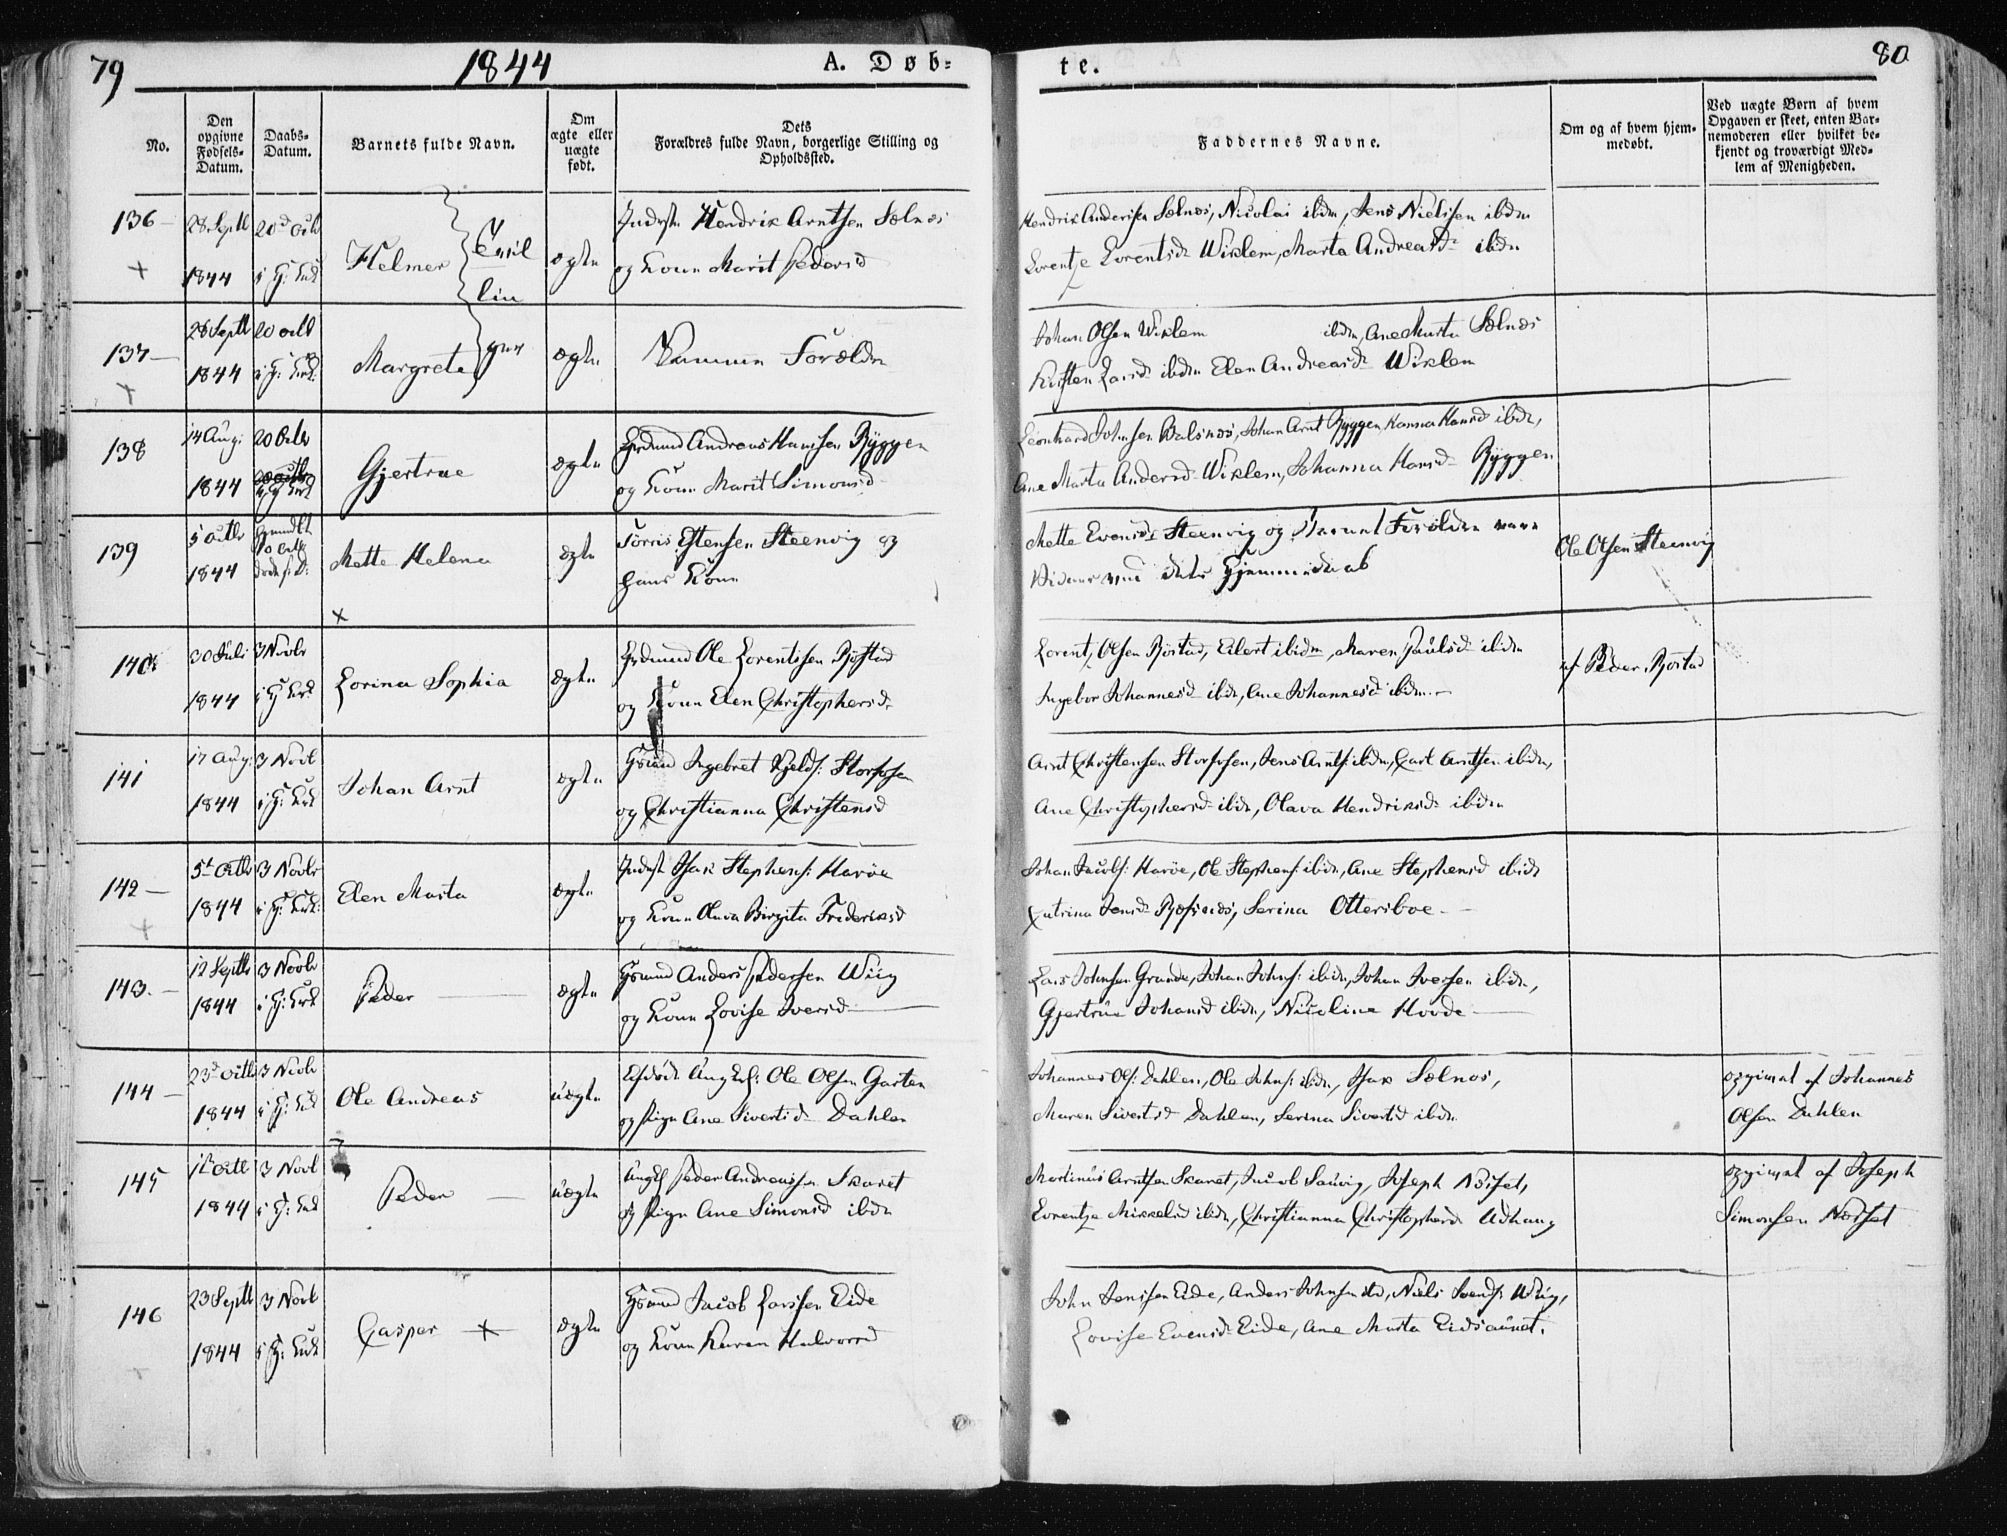 79
1844
A. Døb-
te.
80
No.
Den opgivne Fødsels-Datum.
Daabs-Datum.
Barnets fulde Navn.
Om ægte eller uægte født.
Dets Forældres fulde Navn, borgerlige Stilling og Opholdssted.
Faddernes Navne.
Om og af hvem hjem-
medøbt.
Ved uægte Børn af hvem
Opgaven er skeet, enten Bar-
nemoderen eller hvilket be-
kjendt og troværdigt Med-
lem af Menigheden.
136
28 Septb
1844
Helmer
ægte
Hendrik Arntsen Sælnæs
og Kone Marit Pedersd
Hendrik Andersen Sælnæs, Nicolai ibdn, Jens Nielsen ibdn
Lorentze Lorentsd Wiklem, Marta Andreasd ibdn
137
28 Septb
1844
Margreta
ægte
Samme Forældre
Johan Olsen Wiklem ibdn, Ane Marta Sælnæs
Kirsten Larsd ibdn Elen Andreasd Wiklem
138
14 Aug:
1844
20 Octbr
Gjertrue
ægte
Andreas Hansen Ryggen
og Kone Marit Simonsd
Leonhard Johnsen Balsnæs, Johan Arnt Ryggen, Hanna Hansd ibdn,
Ane Marta Andersd Wiklem, Johanna Hansd Ryggen
139
5 Octbr
1844
Mette Helena
ægte
Steenvig og
hans Kone
Mette Evensd Steenvig og Barnets Forældre vare
Vidner ved dets Hjemmedaab
Ole Olsen Steenvig
140
30 Juli
1844
3 Novbr
Lorina Sophia
ægte
Ole Lorentssen
og Kone Elen Christophersd
Lorents Olsen, Eilert ibidm, Maren Paulsd ibidm
Ingebor Johannesd ibdn, Ane Johannesd ibdn
af Peder
141
17 Aug:
1844
3 Novb
Johan Arnt
ægte
Ingebret Kjelds: Storfosen
og Christianna Christensd
Arnt Christensen Storfosen, Jens Arnts: ibdn, Carl Arntsen ibdn,
Ane Christophersd ibdn, Olava Hendriksd ibdn
142
5t Octbr
1844
3 Novbr
Elen Marta
ægte
Isak Stephens: Harøe
og Kone Olava Birgita Frederiksd
Johan Jacobs: Harøe, Ole Stephens: ibdn, Ane Stephensd ibdn
Catrina Jensd, Serina Ottersboe
143
12 Septbr
1844
3 Novbr
Peder
ægte
Gbmd Anders Pedersen Wiig
og Kone Lovise Iversd
Lars Johnsen Grande, Johan Johns: ibdn, Johan Iversen ibdn,
Gjertrue Johansd ibdn, Nicoline Hovde
144
23d Octbr
1844
3 Novbr
Ole Andreas
uægte
Ole Olsen Garten
og Pige Ane Sivertsd Dahlen
Johannes Ols: Dahlen, Ole Johns: ibdn, Isak Sælnæs,
Maren Sivertsd Dahlen, Serina Sivertsd ibdn
opgivet af Johannes
Olsen Dahlen
145
Octb
1844
3 Novb
Peder
uægte
Ungk Peder Andreassen Skaret
og Pige Ane Simonsd ibdn
Martinus Arntsen Skaret, Jacob Sauvig, Joseph Næset,
Lorentze Mikkelsd ibdn, Christianna Christophersd Udhaug
opgivet af Joseph
Simonsen Næset
146
23 Septb
1844
3 Novb
Casper
ægte
Gbmd Jacob Larssen Eide
og Kone Karen Halvorsd
John Jenssen Eide, Anders Johnsen ibd, Niels Svends: Wiig,
Lovise Evensd Eide, Ane Marta Eidsaunet.